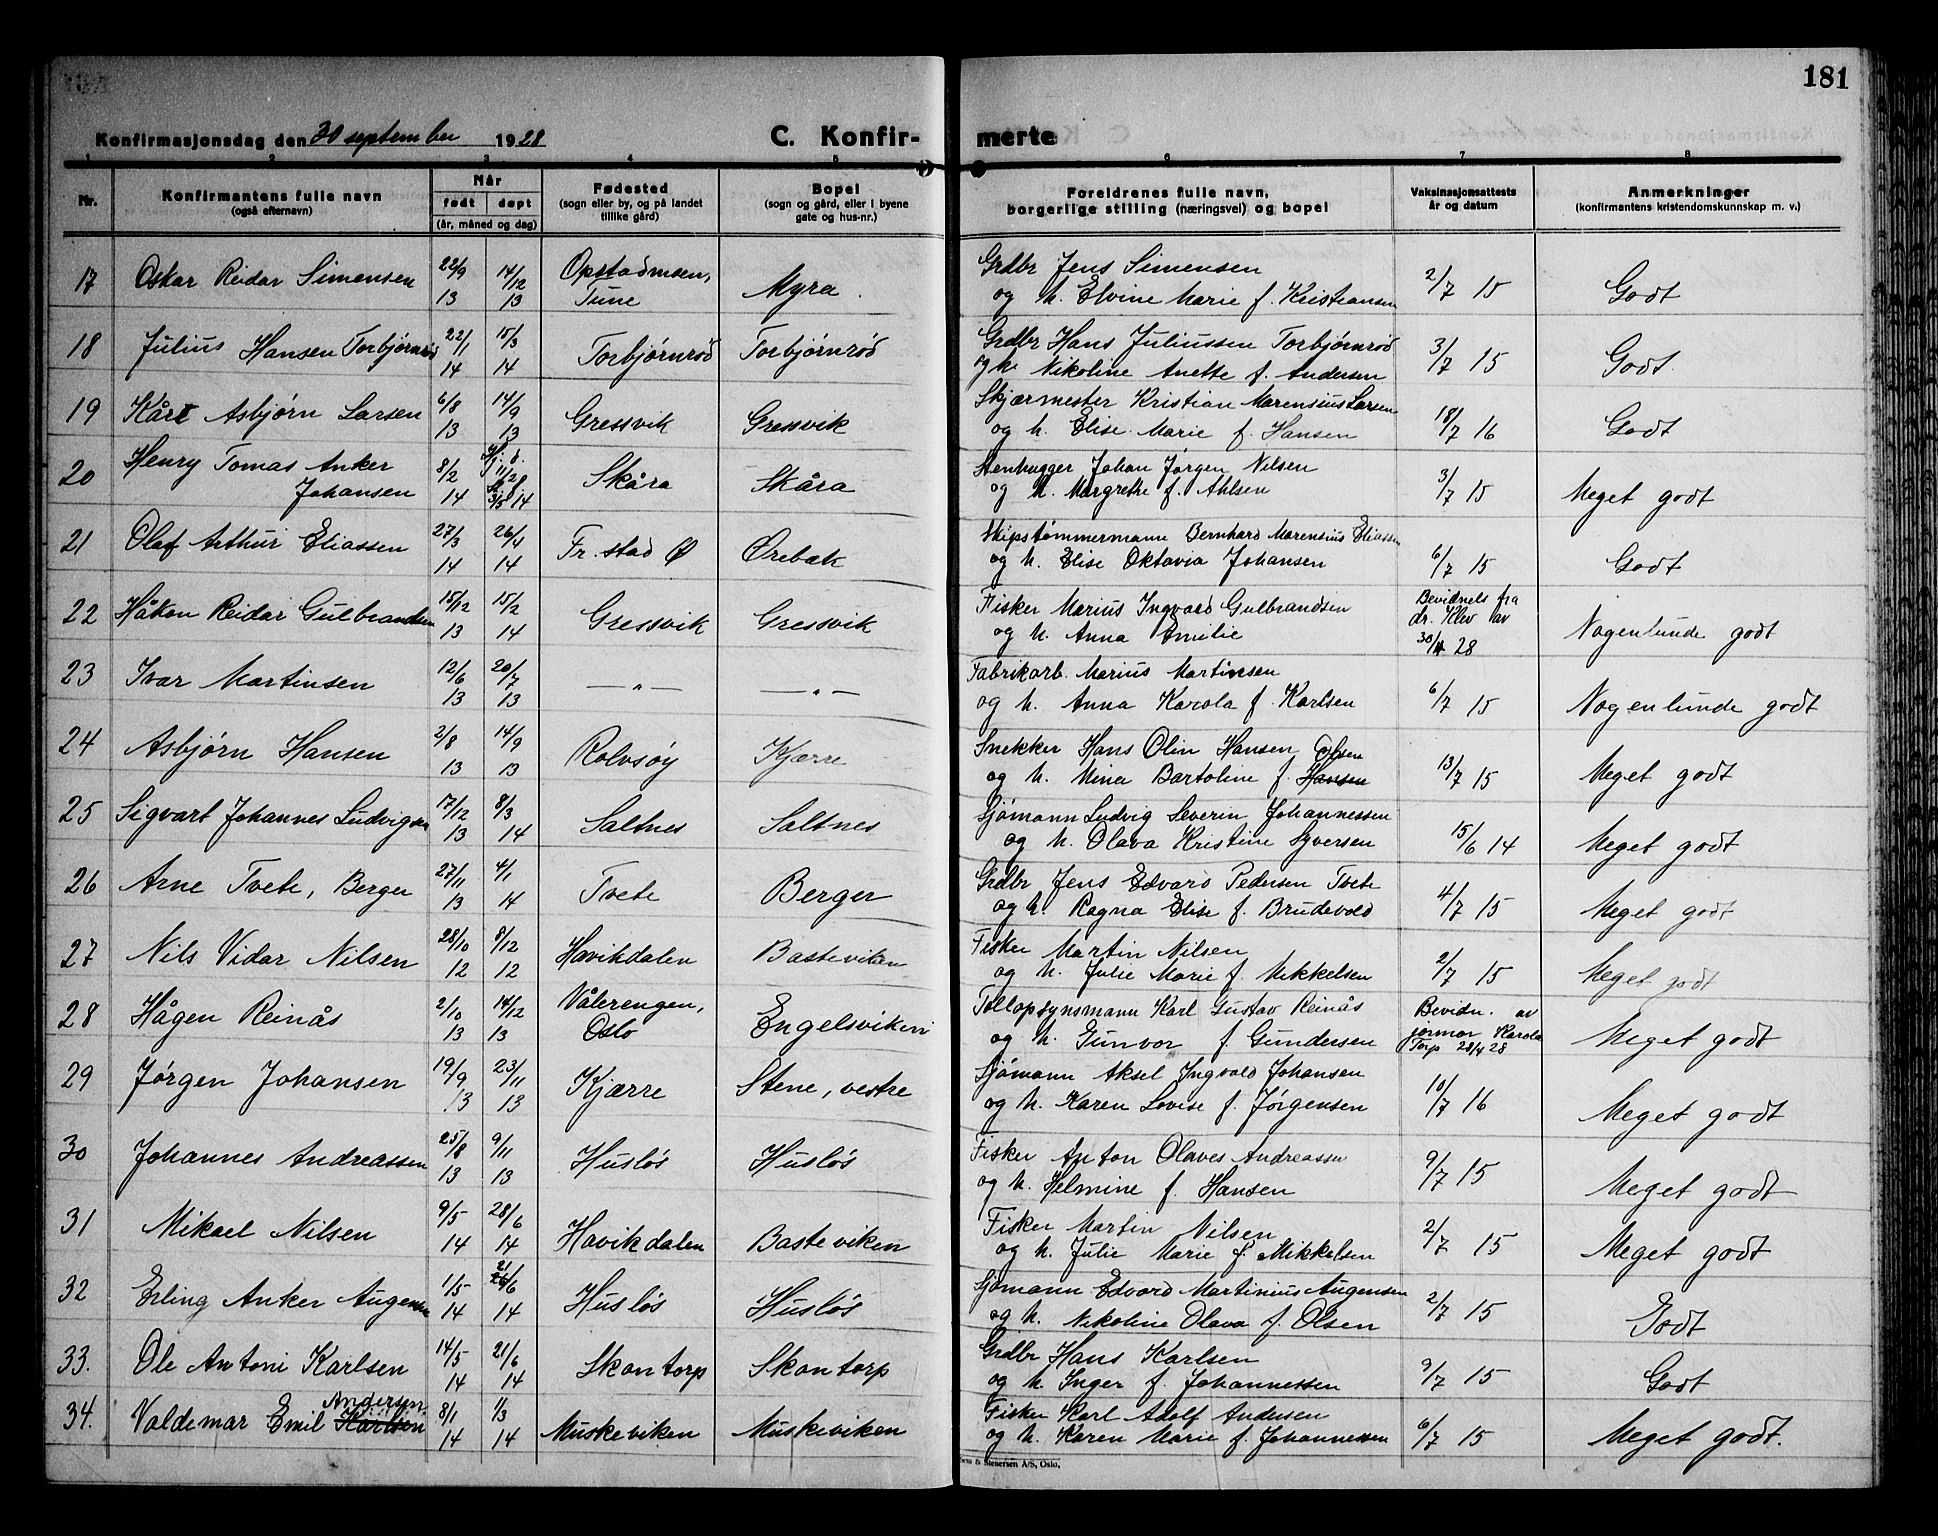 181
Konfirmasjonsdag den 30 september 1928 C. Konfir- merte
1 2 3 4 5 6 7 8
Nr. Konfirmantens fulle navn (også efternavn) Når født døpt (år, måned og dag) Fødested (sogn eller by, og på landet tillike gård) Bopel (sogn og gård, eller i byene gate og hus-nr.) Foreldrenes fulle navn, borgerlige stilling (næringsvei) og bopel Vaksinasjonsattests år og datum Anmerkninger (konfirmantens kristendomskunnskap m. v.)
17 Oskar Reidar Simensen 22/9 13 14/12 13 Opstadmsen, Tune Myra. Grdbr Jens Simensen
og h. Elvine Marie f. Kristiansen 2/7 15 Godt
18 Julius Hansen Torbjørnrød 22/1 14 15/3 14 Torbjørnrød Torbjørnrød Grdbr Hans Juliussen Torbjørnrød
og h. Nikoline Anette f. Andersen 3/7 15 Godt.
19 Kåre Asbjørn Larsen 6/8 13 14/9 13 Gressvik Gressvik Skjærmester Kristian Marensius Larsen
og h. Elise Marie f. Hansen 18/7 16 Godt
20 Henry Tomas Anker Johansen 8/2 14 Hj. d. 11/2 3/5 14 Skåra Skåra Stenhugger Johan Jørgen Nilsen
og h. Margrethe f. Ahlsen 3/7 15 Meget godt
21 Olaf Arthur Eliassen 27/3 14 26/4 14 Fr.stad Ø Ørebak Skipstømmermann Bernhard Marensius Eliassen
og h. Elise Oktavia Johansen 6/7 15 Godt
22 Håkon Reidar Gulbrandsen 15/12 13 15/2 14 Gressvik Gressvik Fisker Marius Ingvard Gulbrandsen
og h. Anna Emilie Bevidnels fra dr. Klev av 30/4 28 Nogenlunde godt
23 Ivar Martinsen 12/6 13 20/7 13 — " — — " — Fabrikarb. Marius Martinsen
og h. Anna Karola f. Karlsen 6/7 15 Nogenlunde godt
24 Asbjørn Hansen 2/8 13 14/9 13 Rolvsøy Kjærre Snekker Hans Olin Hansen
og h. Mina Bartoline f. Hansen Olsen 13/7 15 Meget godt
25 Sigvart Johannes Ludvigsen 17/12 13 8/3 14 Saltnes Saltnes Sjømann Ludvig Severin Johannessen
og h. Olava Kristine Syversen 15/6 14 Meget godt
26 Arne Tvete, Berger 27/11 13 4/1 14 Tvete Berger Grdbr Jens Edvard Pedersen Tvete
og h. Ragna Elise f. Brudevold 4/7 15 Meget godt
27 Nils Vidar Nilsen 28/10 12 8/12 12 Havikdalen Basteviken Fisker Martin Nilsen
og h. Julie Marie f. Mikkelsen 2/7 15 Meget godt
28 Hågen Reinås 2/10 13 14/12 13 Vålerengen, Oslo Engelsviken Tollopsynsmann Karl Gustav Reinås
og h. Gunvor f. Gundersen Bevidn. av jormor Karola Torp 28/4 28 Meget godt
29 Jørgen Johansen 19/9 13 23/11 13 Kjærre Stene, vestre Sjømann Aksel Ingvald Johansen
og h. Karen Lovise f. Jørgensen 10/7 16 Meget godt
30 Johannes Andreassen 25/8 13 9/11 13 Husløs Husløs Fisker Anton Olaves Andreassen
og h. Helmine f. Hansen 9/7 15 Meget godt
31 Mikael Nilsen 9/5 14 28/6 14 Havikdalen Basteviken Fisker Martin Nilsen
og h. Julie Marie f. Mikkelsen 2/7 15 Meget godt
32 Erling Anker Augensen 1/5 14 21/6 14 Husløs Husløs Sjømann Edvard Martinius Augensen
og h. Nikoline Olava f. Olsen 2/7 15 Godt
33. Ole Antoni Karlsen 14/5 14 21/6 14 Skontorp Skontorp Grdbr Hans Karlsen
og h. Inger f. Johannessen 9/7 15 Godt
34. Valdemar Emil Karlsen Andersen 8/1 14 1/3 14 Muskeviken Muskeviken Fisker Karl Adolf Andersen
og h. Karen Marie f. Johannessen 6/7 15 Meget godt.
& Stenersen A/S, Oslo.